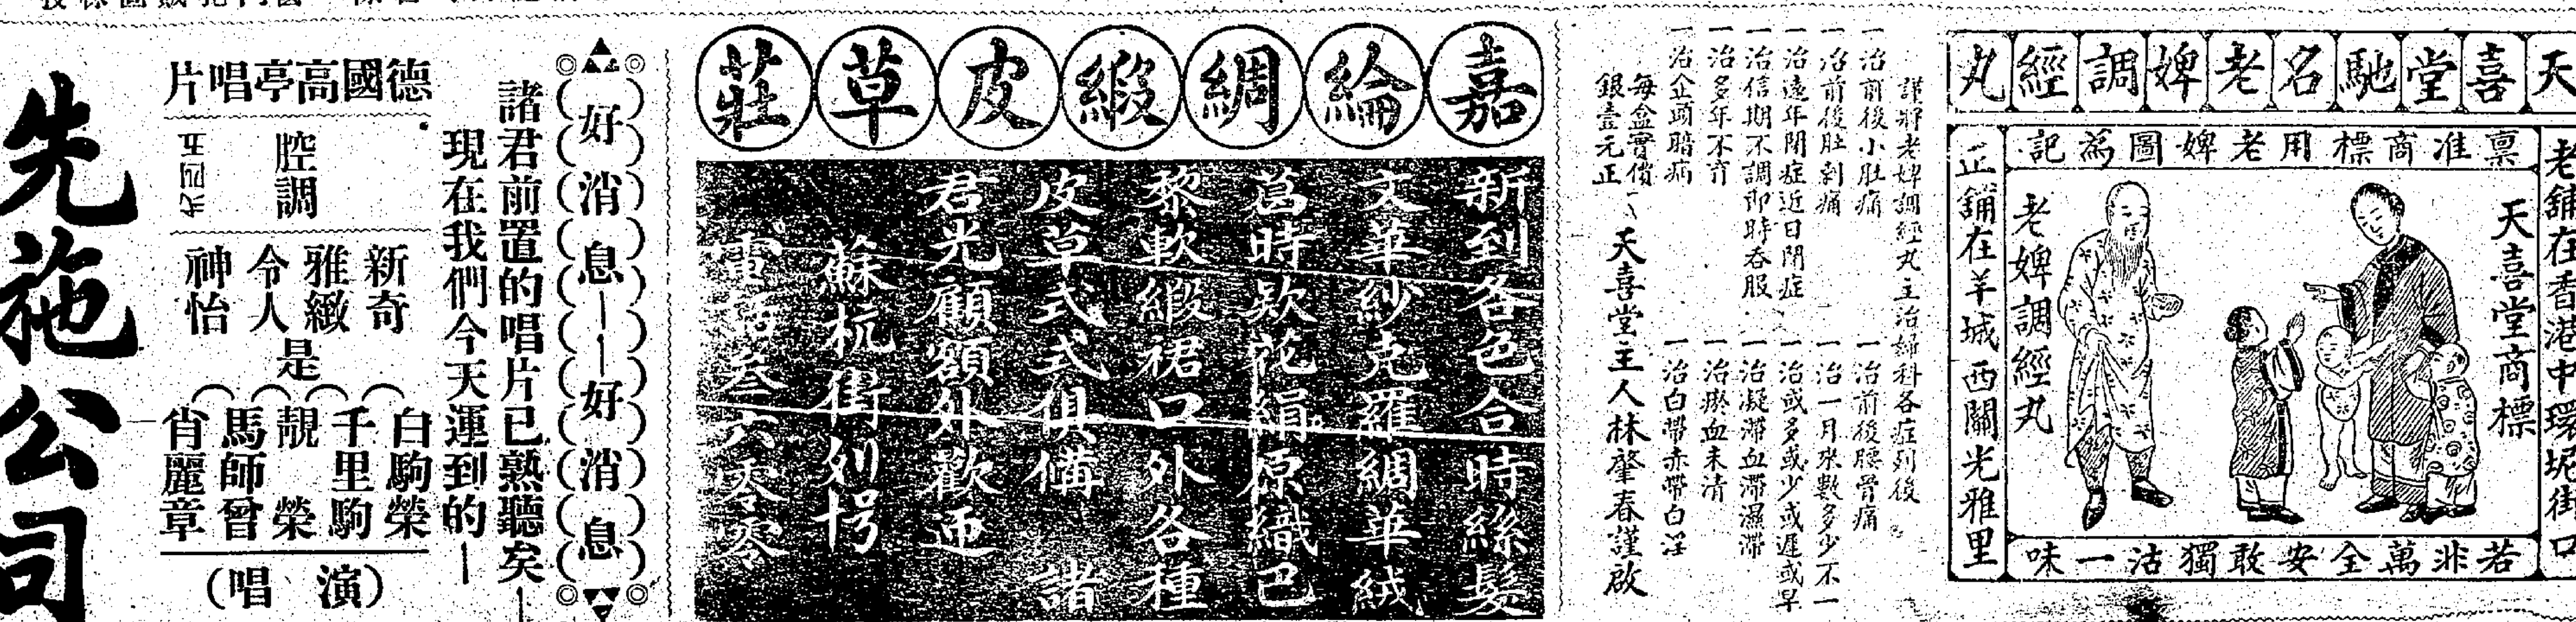 天喜堂馳名老婢調經丸
老舖在香港中環坭街口
稟准商標用老婢圖為記
天喜堂商標
老婢調經丸
正舖在羊城西關光雅里
若非萬全安敢獨沽一味
謹將老婢調經丸主治婦科各症列後
一治前後小肚痛
一治前後腰骨痛
一治前後肚刺痛
一治一月來數多少不一
一治遠年閉症近日閉症
一治或多或少或遲或早
一治信期不調即時吞服
一治凝滯血滯濕滯
一治多年不育
一治瘀血未清
一治企頭暗病
一治白帶赤帶白淫
每盒實價銀壹元正
天喜堂主人林肇春謹啟
嘉綸綢緞皮草莊
新到各色合時絲髮
文華紗克羅綢華絨
莒時欵花絹原織巴
黎軟緞裙口外各種
皮草式式俱備 諸
君光顧額外歡迎
蘇杭街列號
電話叁六零零
好消息——好消息
諸君前置的唱片已熟聽矣—
現在我們今天運到的—
德國高亭唱片
腔調
新奇
雅緻
令人
神怡
是
白駒榮
千里駒
靚 榮
馬師曾
肖麗章
(演 唱)
先施公司